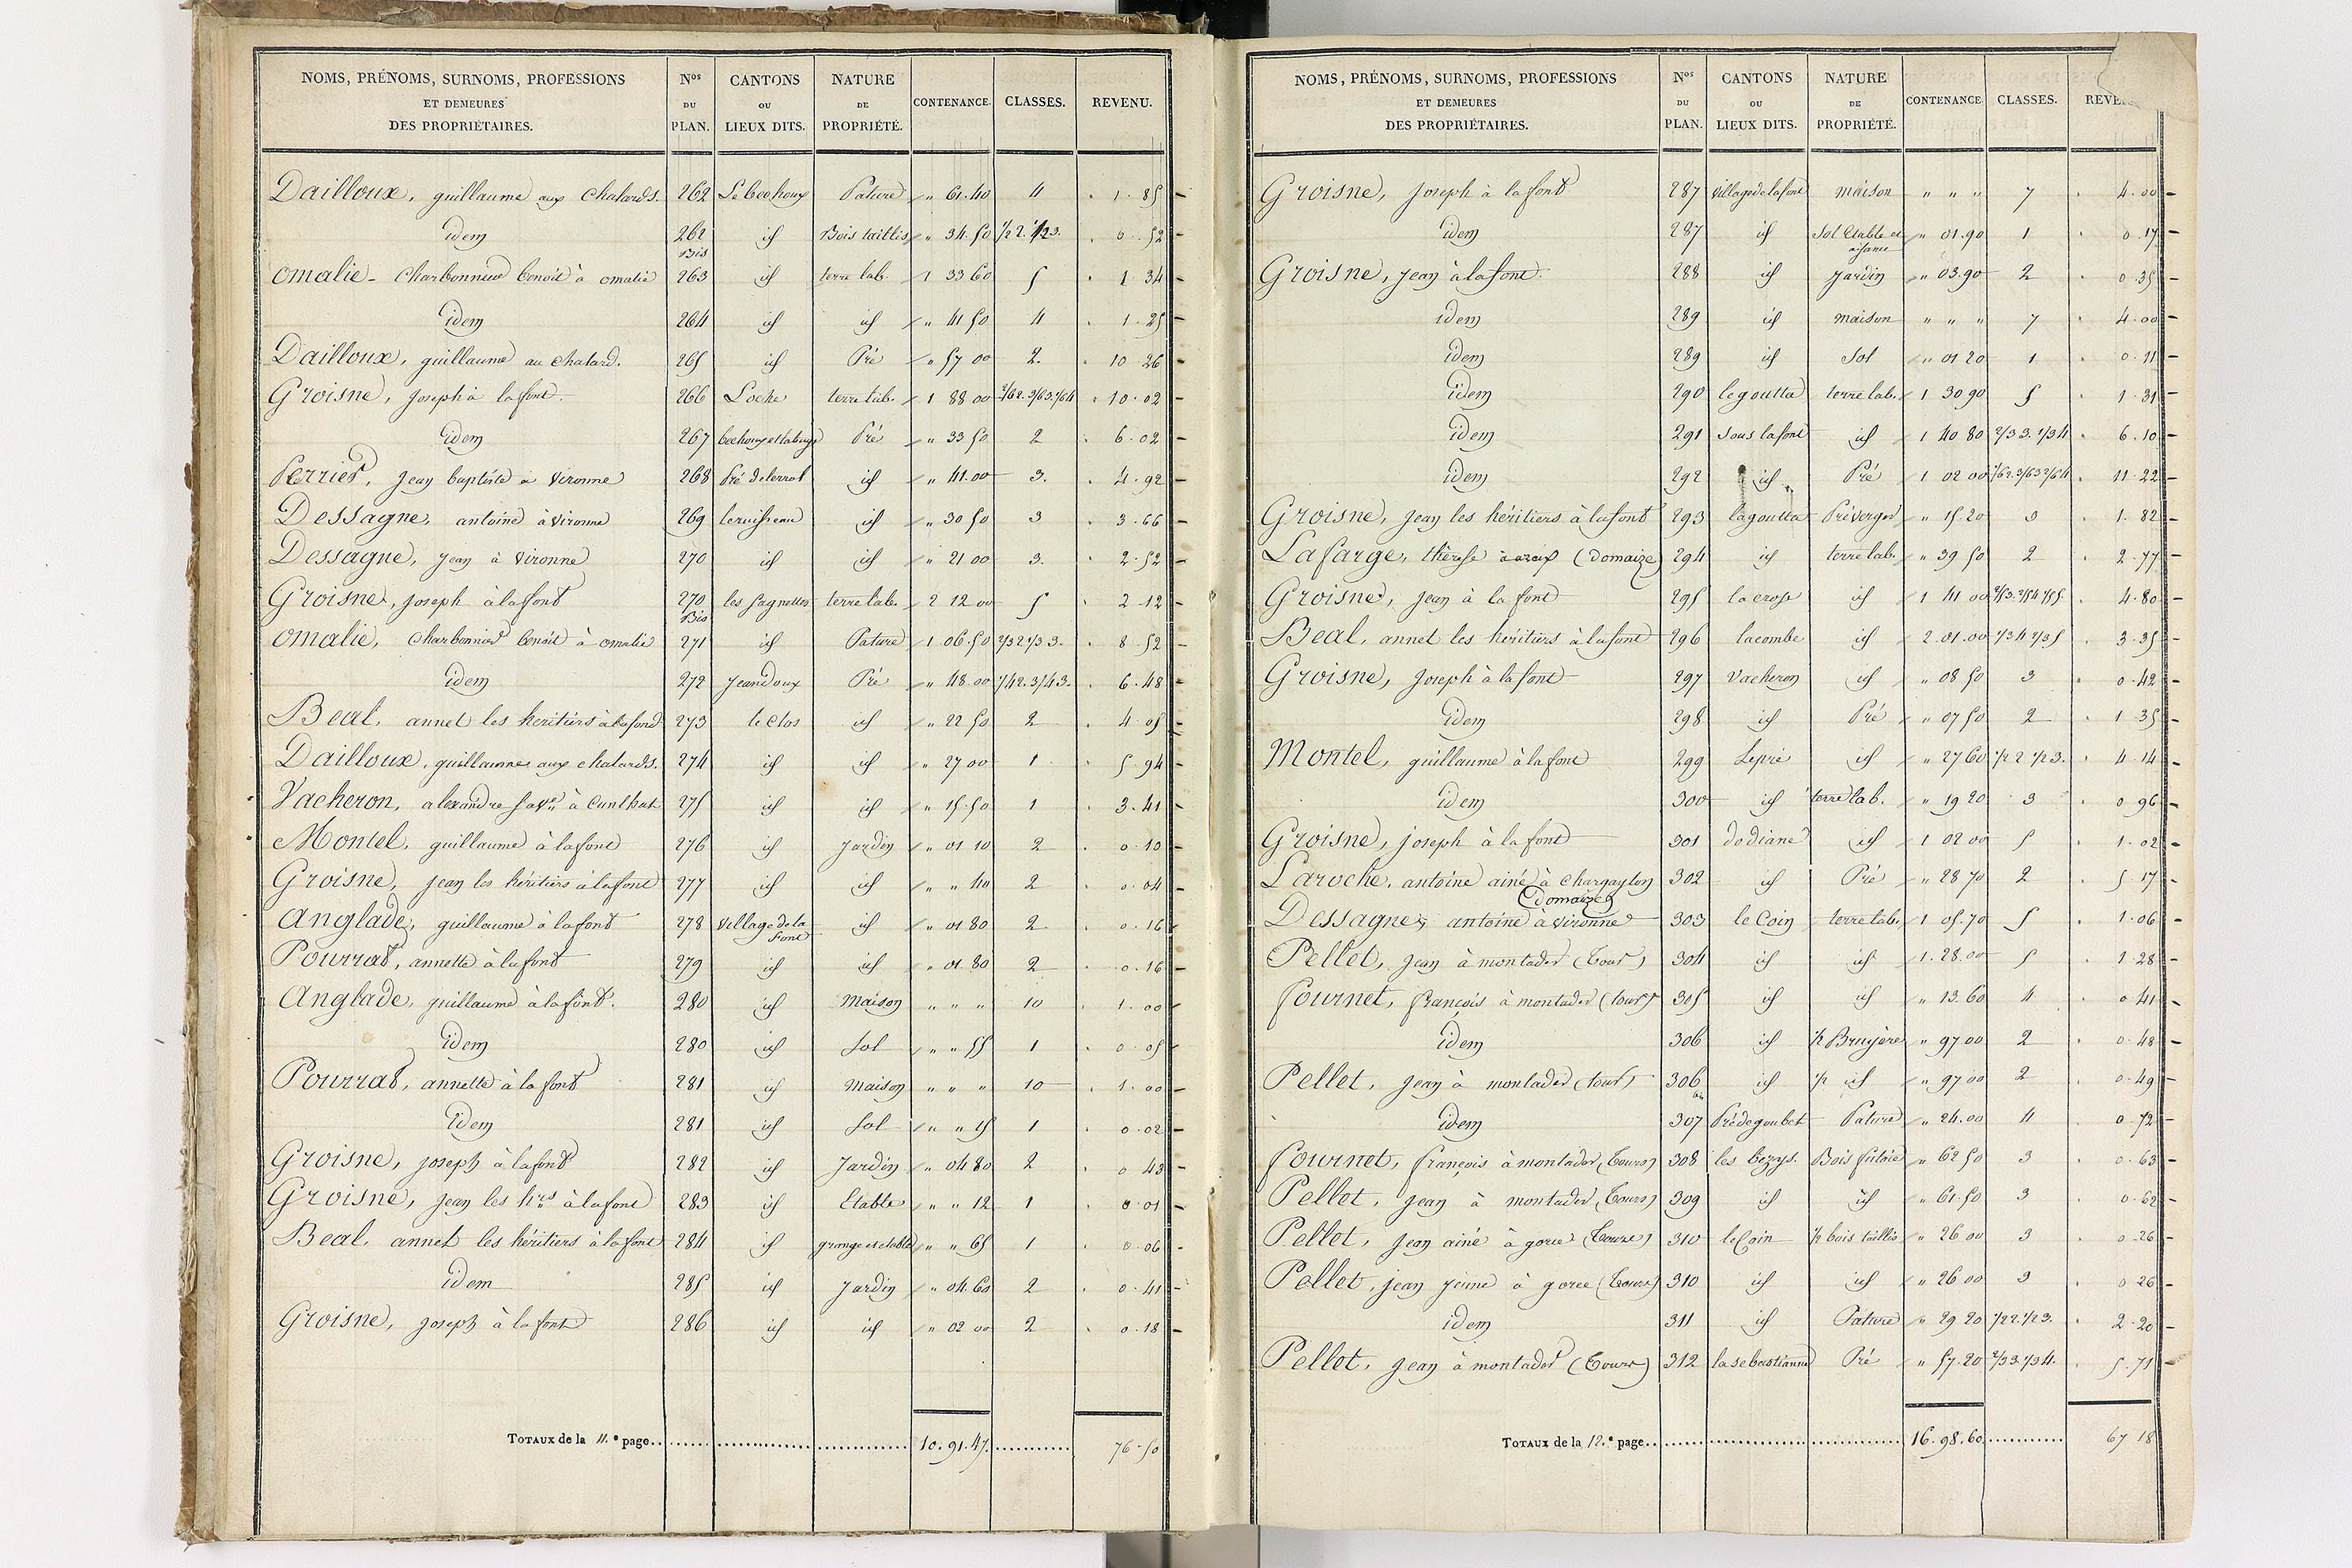 NOMS, PRÉNOMS, SURNOMS, PROFESSIONS ET DEMEURES DES PROPRIÉTAIRES. Nos DU PLAN. CANTONS OU LIEUX DITS. NATURE DE PROPRIÉTÉ. CONTENANCE. CLASSES. REVENU.
Dailloux, guillaume aux chatards. 262 Pature " 61.40 4 1.85
idem 262 Bis id Bois taillis " 34.50 1/2 2. 1/2 3. 0.52
omalie - Charbonnier benoit à omalie 263 id terre lab. 1 33 60 5 1.34
idem 264 id id " 41 50 4 1.25
Dailloux, guillaume au chatard. 265 id Pré " 57 00 2. 10 26
Groisne, Joseph à lafont. 266 Loche terre lab. 1 88 00 10.02
idem 267 Pré " 33 50 2 6.02
Perrier, Jean baptiste a vironne 268 id " 41.00 3. 4.92
Dessagne, antoine à vironne 269 leruisseau id " 30 50 3 3.66
Dessagne, Jean à vironne 270 id id " 21 00 3. 2.52
Groisne, Joseph à lafont 270 Bis les fagnettes terre lab. 2 12 00 5 2 12
omalie, Charbonnier benoit à omalie 271 id Pature 1 06.50 2/3 2 1/3 3. 8.52
idem 272 Jeandoux Pré " 48.00 1/4 2. 3/4 3. 6.48
Beal, annet les heritiers à lafond 273 le Clos id " 22 50 2 4 05
Dailloux, guillaumne aux chatards. 274 id id " 27 00 1 5.94
Vacheron, alexandre à Cunlhat 275 id id " 15.50 1 3.41
Montel, guillaume à lafont 276 id Jardin " 01 10 2 0.10
Groisne, Jean les héritiers à lafont 277 id id " " 40 2 0.04
Anglade, guillaume à lafont 278 Village de la font id " 01 80 2 0.16
Pourrat, annette à lafont 279 id id " 01.80 2 0.16
Anglade, guillaume à lafont. 280 id Maison " " " 10 1.00
idem 280 id Sol " " 55 1 0.05
Pourrat, annette à la font 281 id Maison " " " 10 1.00
idem 281 id Sol " " 15 1 0.02
Groisne, Joseph à lafont 282 id Jardin " 04 80 2 0 43
Groisne, Jean les hrs à lafont 283 id Etable " " 12 1 0.01
Beal, annet les héritiers à lafont 284 id grange et etable " " 65 1 0.06
idem 285 id Jardin " 04.60 2 0.41
Groisne, Joseph à la font 286 id id " 02 00 2 0.18
TOTAUX de la 11.e page 10.91.47. 76.50
NOMS, PRÉNOMS, SURNOMS, PROFESSIONS ET DEMEURES DES PROPRIÉTAIRES. Nos DU PLAN. CANTONS OU LIEUX DITS. NATURE DE PROPRIÉTÉ. CONTENANCE. CLASSES. REVE
Groisne, Joseph à lafont 287 village de lafont maison " " " 7 4.00
idem 287 id Sol Etable et aisance " 01.90 1 0.17
Groisne, Jean à lafont. 288 id Jardin " 03.90 2 0.35
idem 289 id maison " " " 7 4.00
idem 289 id Sol " 01 20 1 0.11
idem 290 legoutta terre lab. 1 30 90 5 1.31
idem 291 sous lafont id 1 40 80 2/3 3. 1/3 4 6.10
idem 292 id Pré 1 02 00 11.22
Groisne, Jean les héritiers à lafont 293 lagoutta Pré verger " 15.20 3 1.82
Lafarge, thérese (Domaize) 294 id terre lab. " 39 50 2 2.77
Groisne, Jean à la font 295 id 1 41 00 4.80
Beal, annet les heritiers à lafont 296 lacombe id 2.01.00 3.35
Groisne, Joseph à la font 297 Vacheron id " 08 50 3 0.42
idem 298 id Pré " 07 50 2 1 35
Montel, guillaume à lafont 299 Lepré id " 27 60 1/2 2 1/2 3. 4.14
idem 300 id terre lab. " 19 20 3 0 96
Groisne, Joseph à la font 301 dodiane id 1 02 00 5 1.02
Laroche, antoine ainé à Chargayton (Domaize) 302 id Pré " 28 70 2 5 17
Dessagne, antoine à vironne 303 le Coin terre lab. 1 05.70 5 1.06
Pellet, Jean à montader (Tour) 304 id id 1.28.00 5 1 28
fournet, françois à montader (tours) 305 id id " 13.60 4 0.41
idem 306 id 1/2 Bruyère " 97 00 2 0.48
Pellet, Jean à montader (tours) 306 bis id 1/2 id " 97 00 2 0.49
idem 307 Pré de goubet Pature " 24.00 4 0.72
fournet, françois à montader (Tours) 308 Bois futaie " 62 50 3 0.63
Pellet, Jean à montader (Tours) 309 id id " 61.50 3 0.62
Pellet, Jean ainé à goree (Tours) 310 le Coin 1/2 bois taillis " 26 00 3 0.26
Pellet, jean jeune à goree (Tours) 310 id id " 26 00 3 0 26
idem 311 id Pature " 29 20 1/2 2. 1/2 3. 2.20
Pellet, Jean à montader (Tours) 312 la sebastianne Pré " 57.20 2/3 3 1/3 4. 5.71
TOTAUX de la 12.e page 16.98.60 67 18